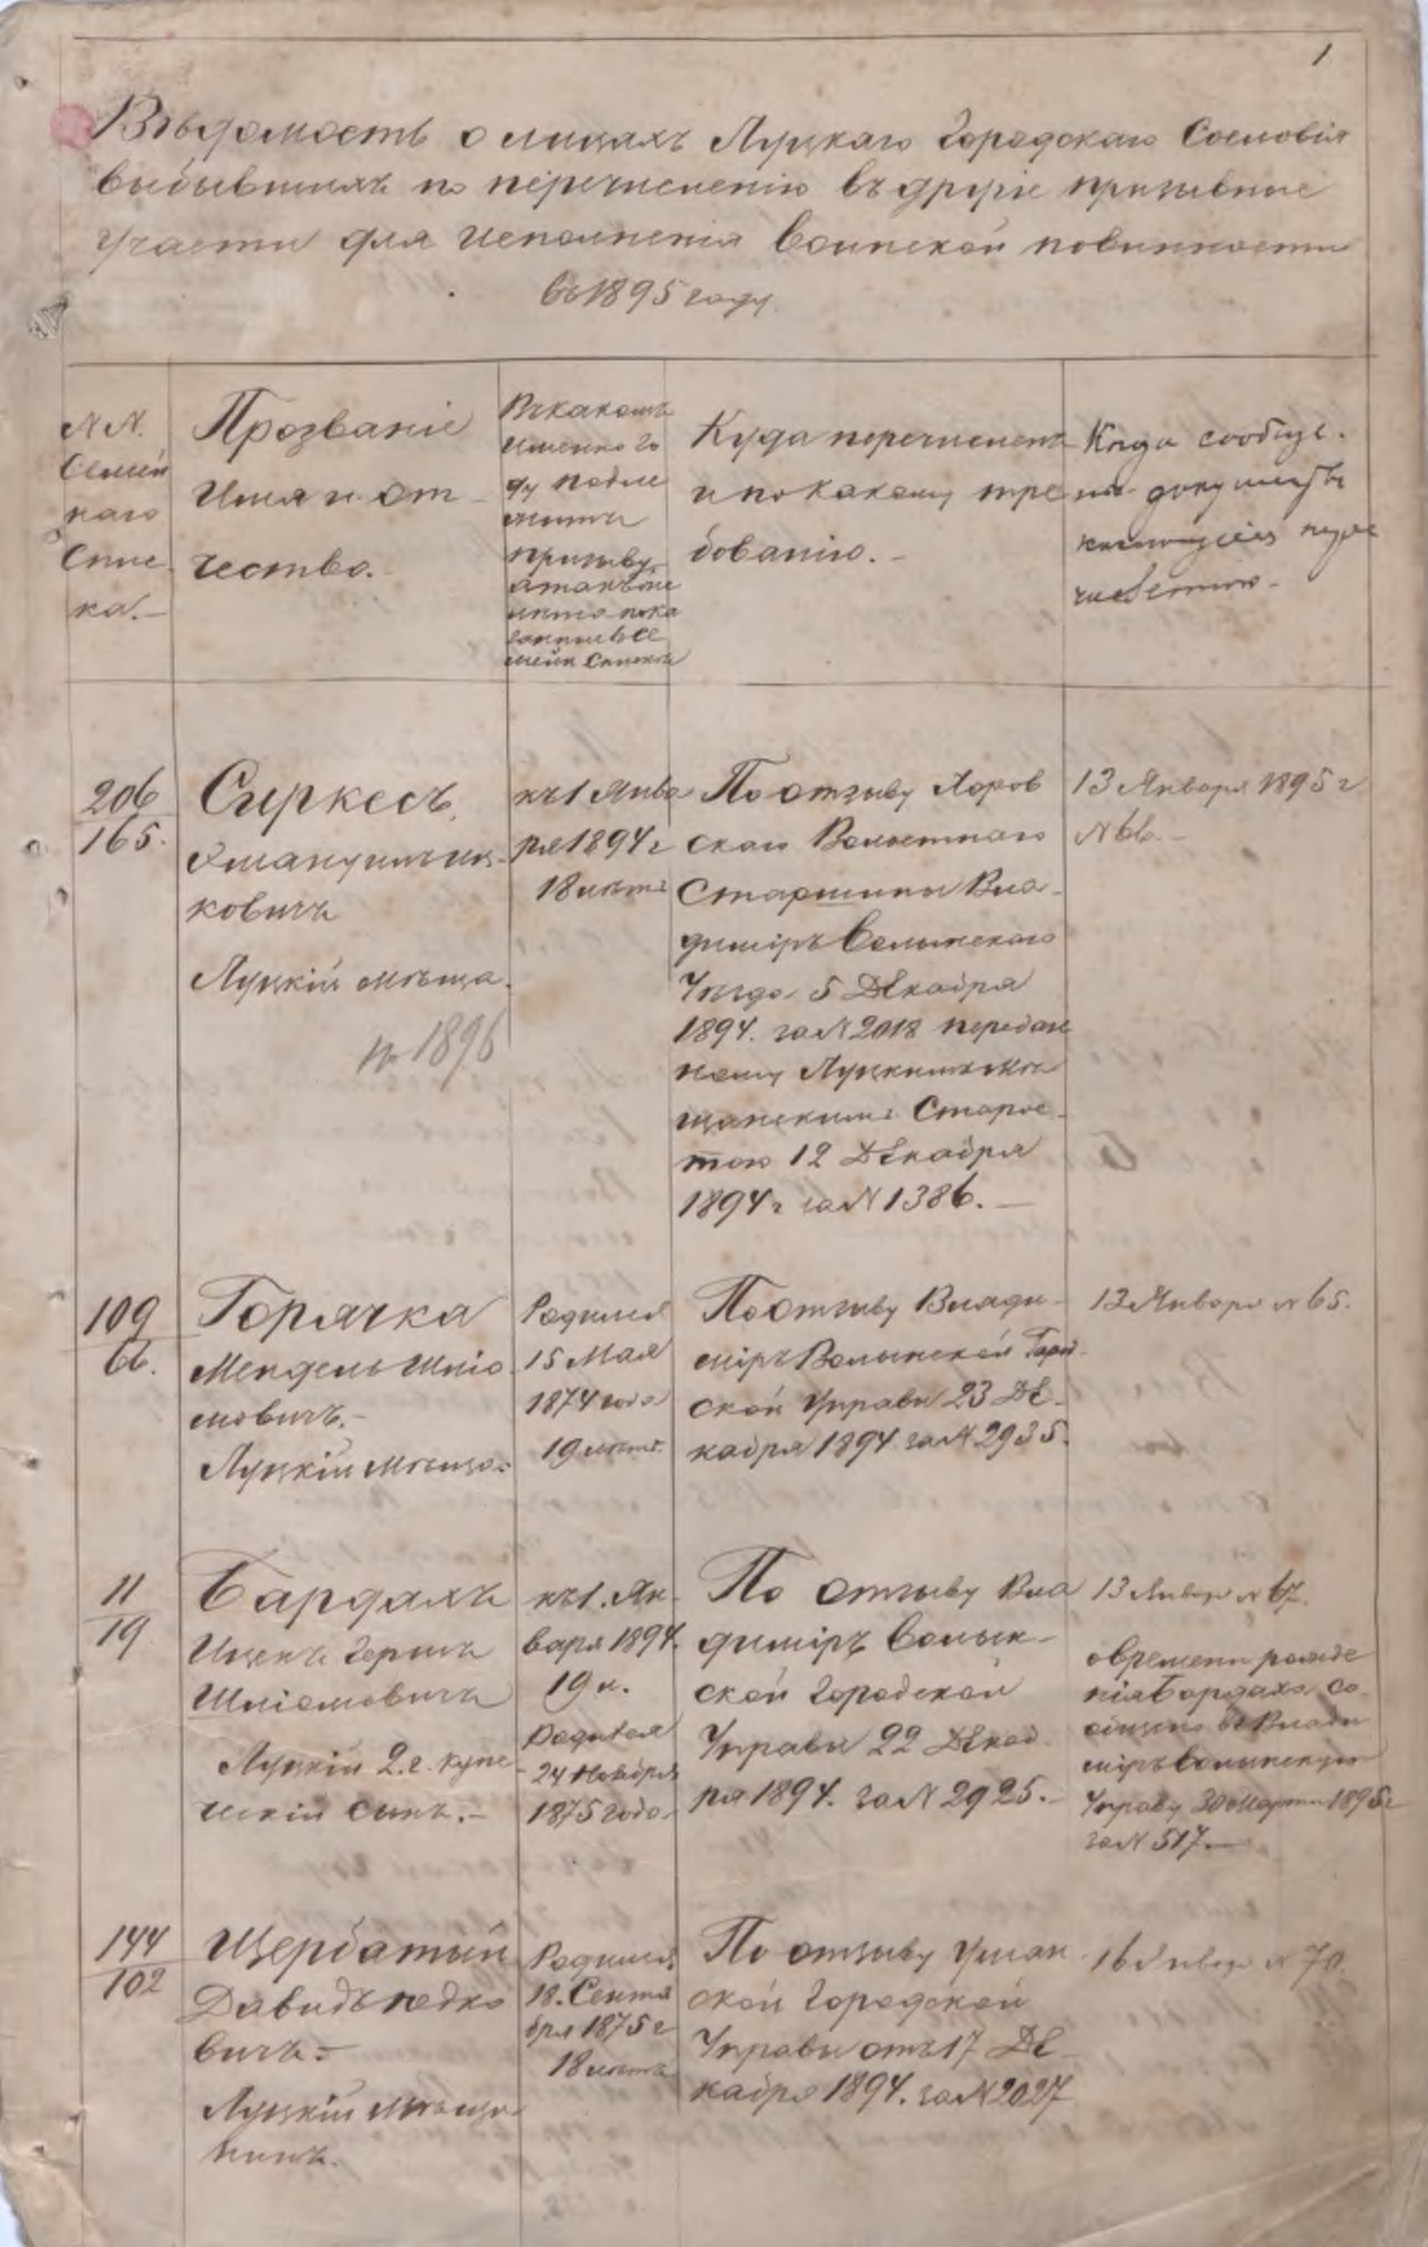 1
Вѣдомость о лицахъ Луцкаго Городскаго Сословія
выбывшихъ по перечисленію въ другіе призывные
участки для исполненія воинской повинности
въ 1895 году.
N N.
Семей
наго
Спис
ка.—
Прозваніе
Имя и от
чество.—
Въ какомъ
именно го
ду подле
житъ
призыву,
а такъ же
лѣта пока
занныя въ се
мейн. спискѣ
Куда перечисленъ
и по какому тре
бованію.—
Когда сообще-
ны документы
численію.
206
165.
Сиркесъ,
ковичъ
Луцкій мѣща.
къ 1 Янва
ря 1894 г
18 лѣтъ
По отзыву Хоров
скаго Волостнаго
Старшины Вла-
диміръ Волынскаго
Уѣзда 5 Декабря
1894. за N 2018 передан
ному Луцкимъ Мѣ
щанскимъ Старос-
тою 12 Декабря
1894 г за N 1386.—
13 Января 1895 г
N 66.—
1896
109
66.
Горячка
Мендель Шліо
мовичъ.—
Луцкій мѣща:
Родился
15 Мая
1874 года
19 лѣтъ.
По отзыву Влади-
міръ Волынской Город
ской Управы 23 Де-
кабря 1894. за N 2935.
13 Января N 65.
11
19
Бардахъ
Ицекъ Гершъ
Шліомовичъ
Луцкій 2.г. купе-
ческій сынъ.—
къ 1. Ян-
варя 1894.
19 л.
Родился
24 Ноября
1875 года.
По отзыву Вла
диміръ Волын-
ской Городской
Управы 22 Декаб-
ря 1894. за N 2925.—
13 Января N 67.
о времени рожде
нія Бардаха со-
общено въ Влади
міръ Волынскую
Управу 30 Марта 1895 г
за N 517.—
144
102
Щербатый
Давидъ
вичъ.—
Луцкій мѣща-
нинъ.
Родился
18. Сентя
бря 1875 г
18 лѣтъ
По отзыву Уман-
ской Городской
Управы отъ 17 Де-
кабря 1894. за N 2027
16 Января N 70.